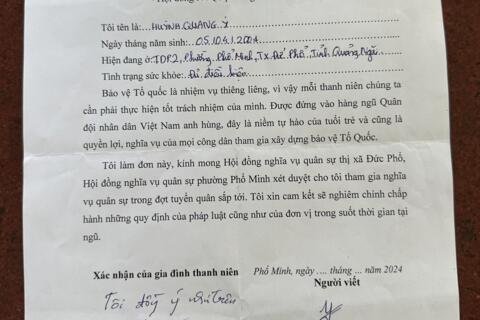 Tôi tên là: HUỲNH QUANG Ý
Ngày tháng năm sinh: 05/04/2004
Hiện đang ở: TDP2, Phường Phổ Minh, TX. Đức Phổ, Tỉnh Quảng Ngãi
Tình trạng sức khỏe: Đủ điều kiện
Bảo vệ Tổ quốc là nhiệm vụ thiêng liêng, vì vậy mỗi thanh niên chúng ta
cần phải thực hiện tốt trách nhiệm của mình. Được đứng vào hàng ngũ Quân
đội nhân dân Việt Nam anh hùng, đây là niềm tự hào của tuổi trẻ và cũng là
quyền lợi, nghĩa vụ của mọi công dân tham gia xây dựng bảo vệ Tổ Quốc.
Tôi làm đơn này, kính mong Hội đồng nghĩa vụ quân sự thị xã Đức Phổ,
Hội đồng nghĩa vụ quân sự phường Phổ Minh xét duyệt cho tôi tham gia nghĩa
vụ quân sự trong đợt tuyển quân sắp tới. Tôi xin cam kết sẽ nghiêm chỉnh chấp
hành những quy định của pháp luật cũng như của đơn vị trong suốt thời gian tại
ngũ.
Phổ Minh, ngày .... tháng ... năm 2024
Xác nhận của gia đình thanh niên
Người viết
Tôi đồng ý như trên